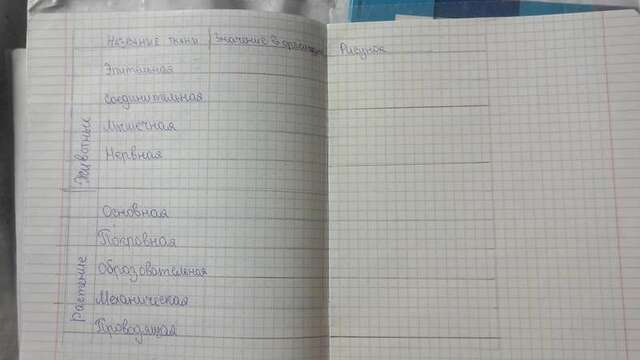 Название ткани Значение в организме Рисунок
Животные
Эпительная
Соединительная
Мышечная
Нервная
Растение
Основная
Покровная
Образовательная
Механическая
Проводящая